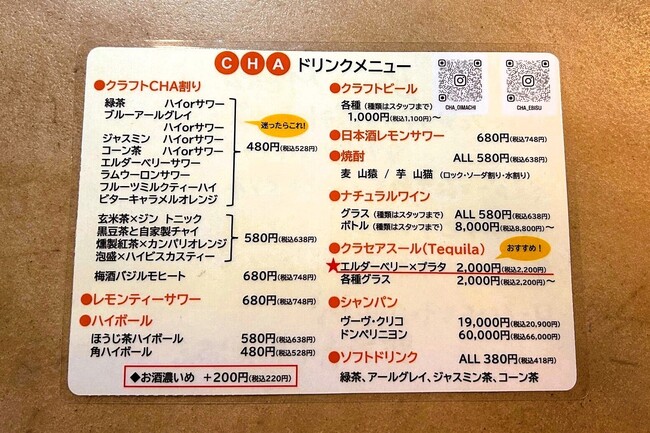 CHA ドリンクメニュー
CHA_OIMACHI
CHA_EBISU
●クラフトCHA割り
緑茶 ハイorサワー
ブルーアールグレイ
ハイorサワー
ジャスミン ハイorサワー
コーン茶 ハイorサワー
エルダーベリーサワー
ラムウーロンサワー
フルーツミルクティーハイ
ビターキャラメルオレンジ
迷ったらこれ!
480円(税込528円)
玄米茶×ジン トニック
黒豆茶と自家製チャイ
燻製紅茶×カンパリオレンジ
泡盛×ハイビスカスティー
580円(税込638円)
梅酒バジルモヒート 680円(税込748円)
●レモンティーサワー 680円(税込748円)
●ハイボール
ほうじ茶ハイボール 580円(税込638円)
角ハイボール 480円(税込528円)
◆お酒濃いめ +200円(税込220円)
●クラフトビール
各種(種類はスタッフまで)
1,000円(税込1,100円)〜
●日本酒レモンサワー 680円(税込748円)
●焼酎 ALL 580円(税込638円)
麦 山猿 / 芋 山猫 (ロック・ソーダ割り・水割り)
●ナチュラルワイン
グラス(種類はスタッフまで) ALL 580円(税込638円)
ボトル(種類はスタッフまで) 8,000円(税込8,800円)〜
●クラセアスール(Tequila) おすすめ!
★エルダーベリー×プラタ 2,000円(税込2,200円)
各種グラス 2,000円(税込2,200円)〜
●シャンパン
ヴーヴ・クリコ 19,000円(税込20,900円)
ドンペリニヨン 60,000円(税込66,000円)
●ソフトドリンク ALL 380円(税込418円)
緑茶、アールグレイ、ジャスミン茶、コーン茶